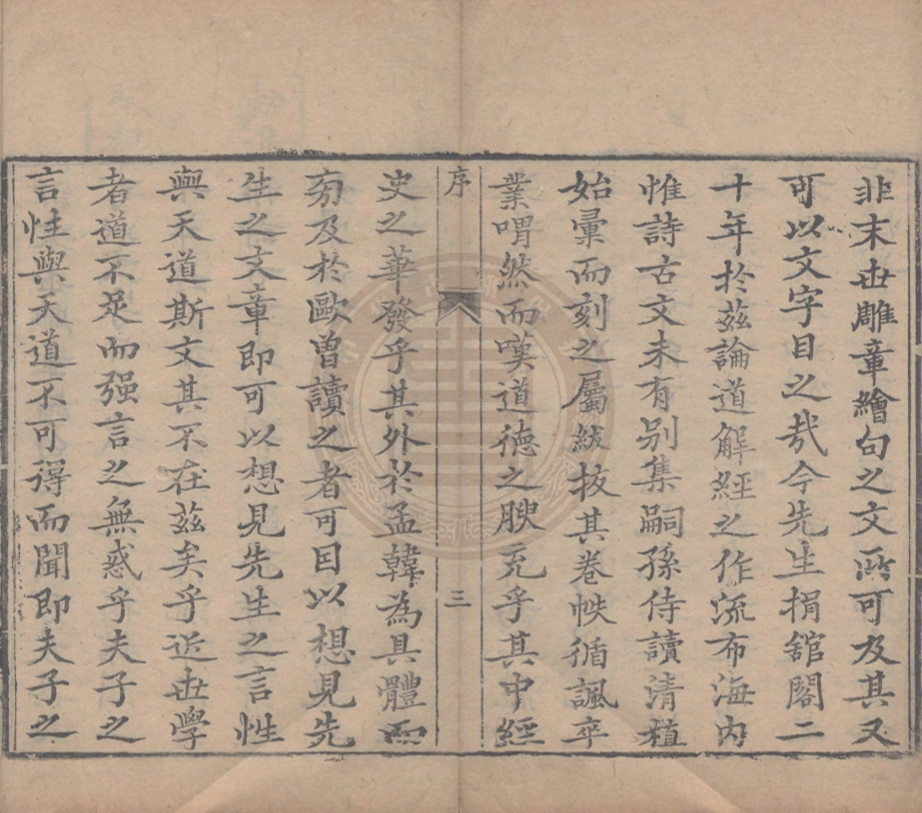 非末世雕章繪句之文所可及其又
可以文字目之哉今先生捐舘閣二
十年於茲論道解經之作流布海内
惟詩古文未有别集嗣孫侍讀清植
始彙而刻之屬紱拔其卷帙循諷卒
業喟然而嘆道德之腴充乎其中經
序
三
史之華發乎其外於孟韓為具體而
旁及於歐曾讀之者可因以想見先
生之文章即可以想見先生之言性
與天道斯文其不在茲矣乎近世學
者道不足而强言之無惑乎夫子之
言性與天道不可得而聞即夫子之